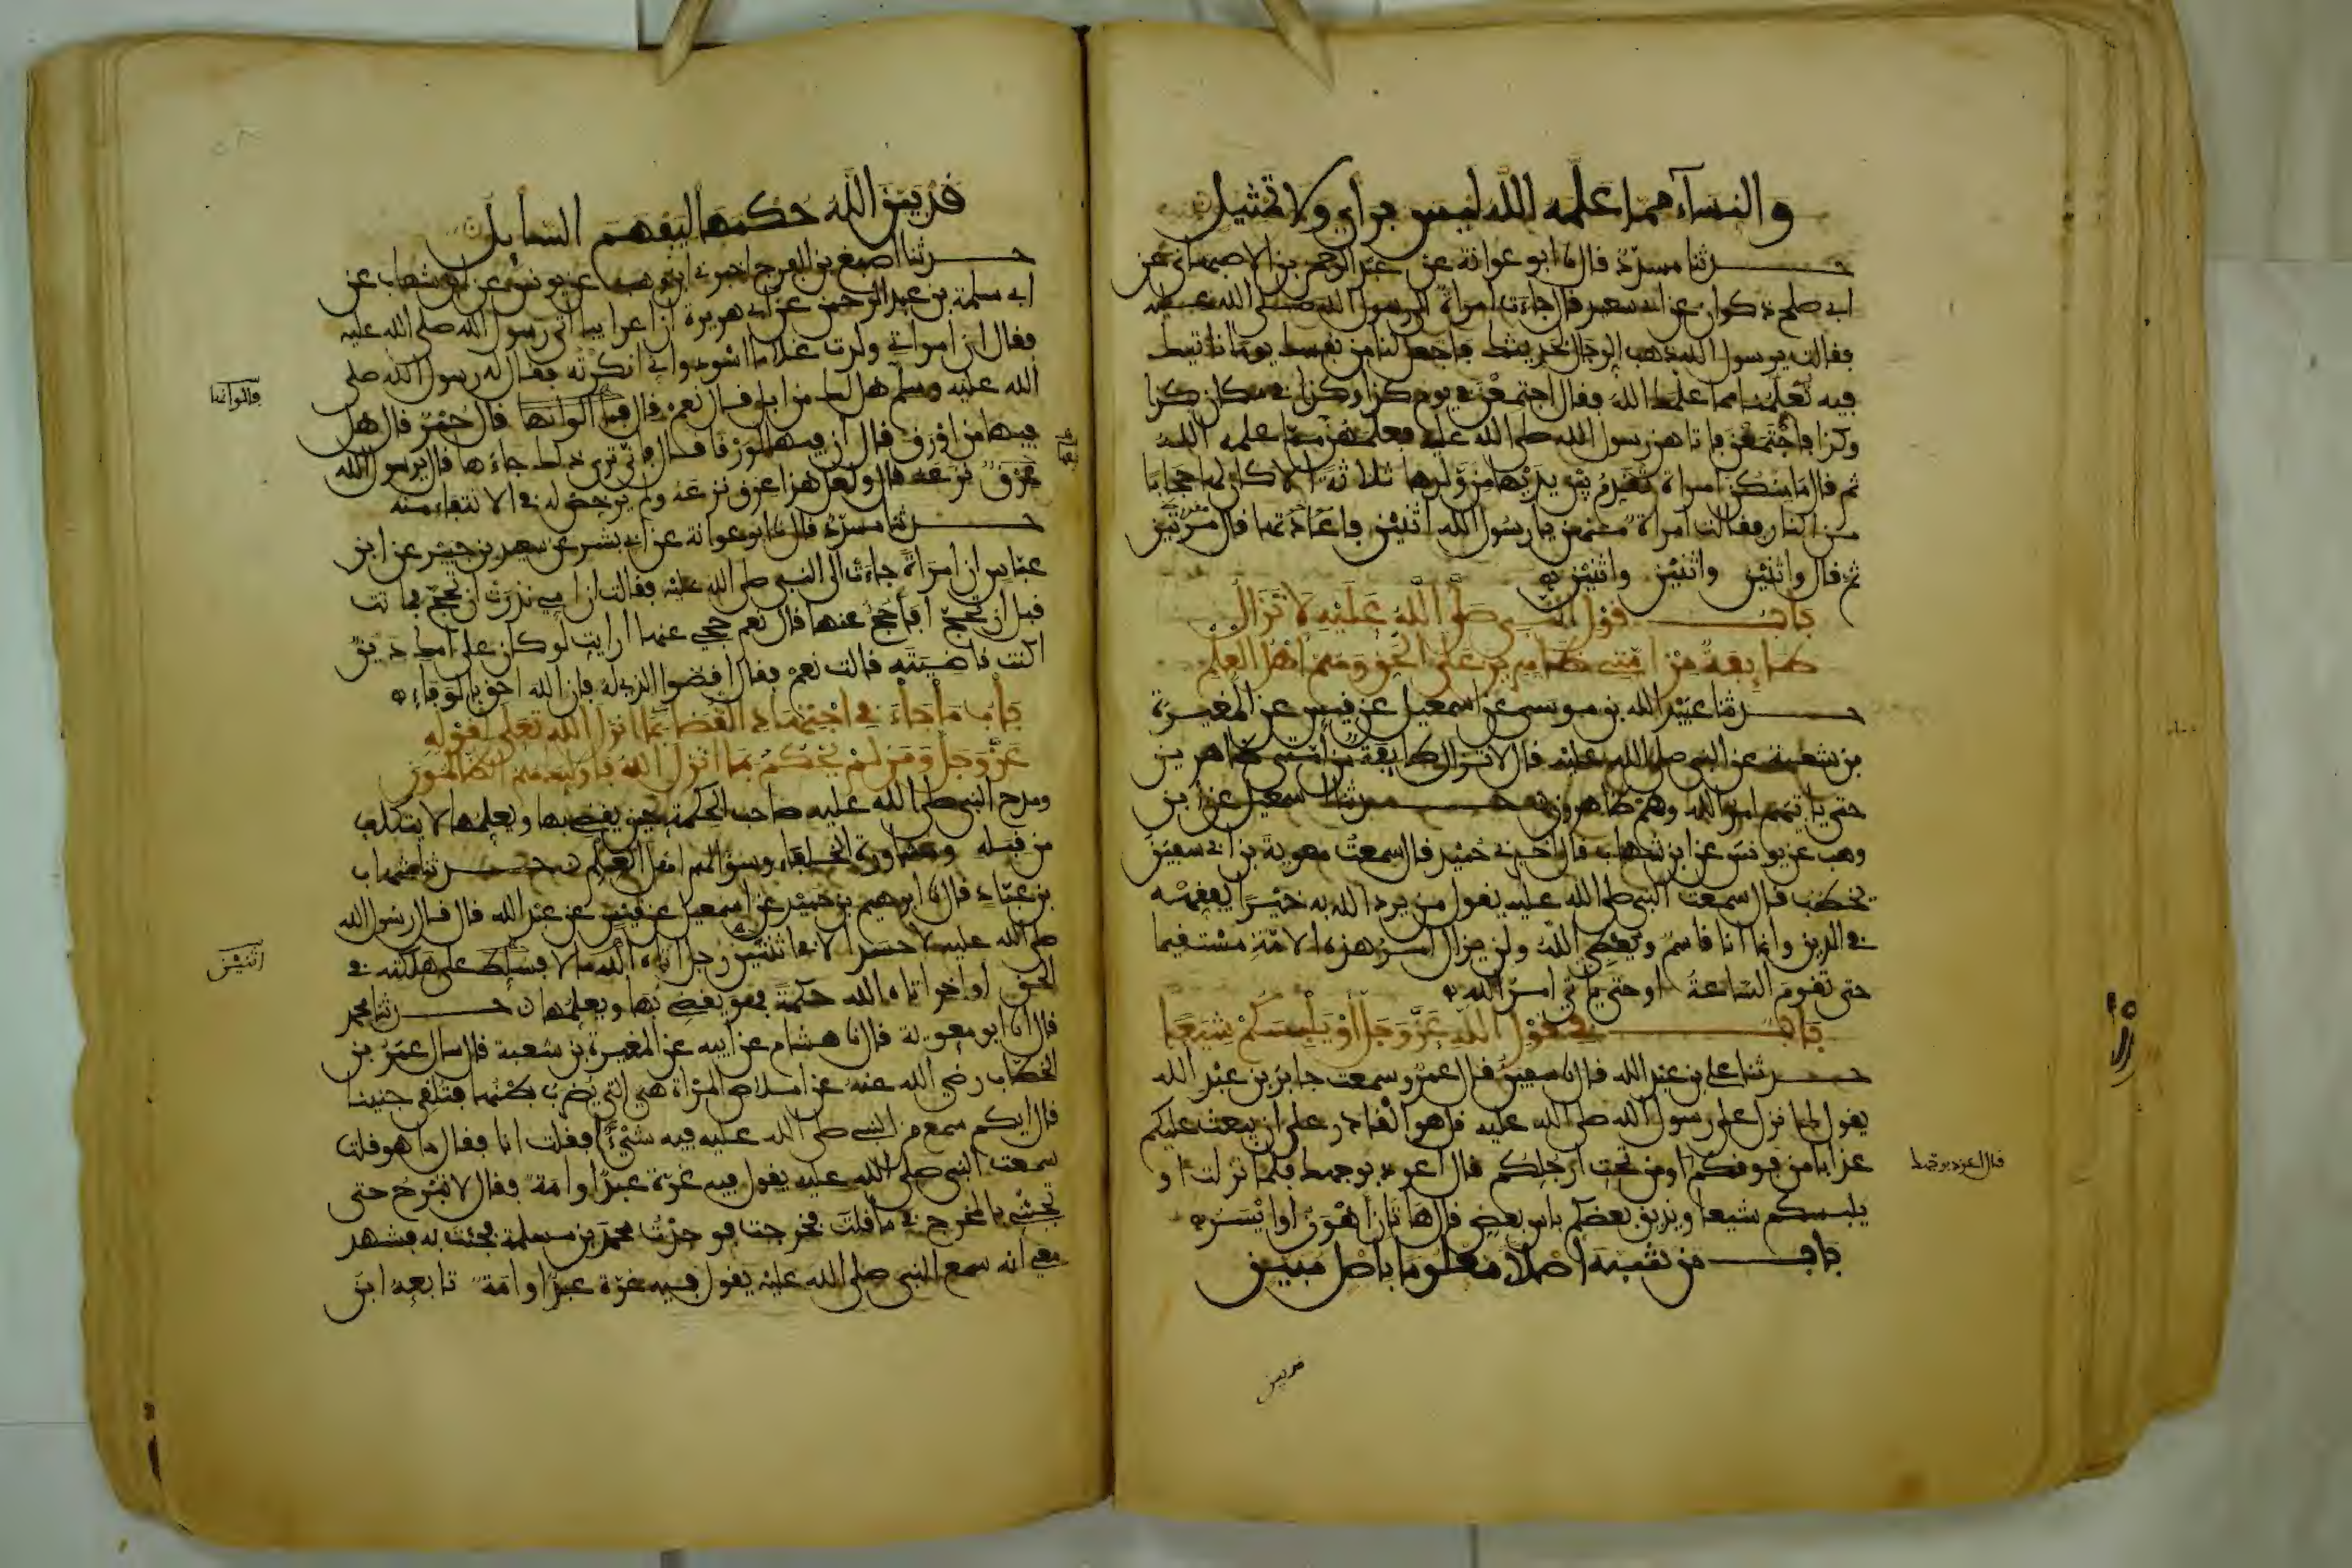 والنساء مما علمه الله ليس براي ولا تمثيل
حدثنا مسدد قال نا ابو عوانة عن عبد الرحمن بن الاصبهاني عن
ابي صلح ذكوان عن ابي سعيد قال جاءت امراة الى رسول الله صلى الله عليه
فقالت يرسول الله ذهب الرجال بحديثك فاجعل لنا من نفسك يوما ناتيك
فيه تعلمنا مما علمك الله فقال اجتمعن في يوم كذا وكذا في مكان كذا
وكذا فاجتمعن فاتاهن رسول الله صلى الله عليه فعلمهن مما علمه الله
ثم قال ما منكن امراة تقدم بين يديها من ولدها ثلاثة الا كان لها حجابا
من النار فقالت امراة منهن يا رسول الله اثنين فاعادتها قال مرتين
ثم قال واثنين واثنين واثنين
باب قول النبي صلى الله عليه لا تزال
طايفة من امتي ظاهرين على الحق وهم اهل العلم
حدثنا عبيد الله بن موسى عن اسمعيل عن قيس عن المغيرة
بن شعبة عن النبي صلى الله عليه قال لا تزال طايفة من امتي ظاهرين
حتى ياتيهم امر الله وهم ظاهرون حدثنا اسمعيل عن ابن
وهب عن يونس عن ابن شهاب قال اخبرني حميد قال سمعت معوية بن ابي سفين
يخطب قال سمعت النبي صلى الله عليه يقول من يرد الله به خيرا يفقهه
في الدين وانما انا قاسم ويعطي الله ولن يزال امر هذه الامة مستقيما
حتى تقوم الساعة او حتى ياتي امر الله
باب في قول الله عز وجل او يلبسكم شيعا
حدثنا علي بن عبد الله قال نا سفين قال عمرو سمعت جابر بن عبد الله
يقول لما نزل على رسول الله صلى الله عليه قل هو القادر على ان يبعث عليكم
عذابا من فوقكم او من تحت ارجلكم قال اعوذ بوجهك فلما نزلت او
يلبسكم شيعا ويذيق بعضكم باس بعض قال هاتان اهون او ايسر
باب من شبه اصلا معلوما باصل مبين
قال اعوذ بوجهك
قد بين
قد بين الله حكمها ليفهم السايل
حدثنا اصبغ بن الفرج اخبرني ابن وهب عن يونس عن ابن شهاب عن
ابي سلمة بن عبد الرحمن عن ابي هريرة ان اعرابيا اتى رسول الله صلى الله عليه
فقال ان امراتي ولدت غلاما اسود واني انكرته فقال له رسول الله صلى
الله عليه وسلم هل لك من ابل قال نعم قال فما الوانها قال حمر قال هل
فيها من اورق قال ان فيها لورقا قال فانى ترى ذلك جاءها قال يرسول الله
عرق نزعه قال ولعل هذا عرق نزعه ولم يرخص له في الانتفاء منه
حدثنا مسدد قال نا ابو عوانة عن ابي بشر عن سعيد بن جبير عن ابن
عباس ان امراة جاءت الى النبي صلى الله عليه فقالت ان امي نذرت ان تحج فماتت
قبل ان تحج افاحج عنها قال نعم حجي عنها ارايت لو كان على امك دين
اكنت قاضيته قالت نعم فقال اقضوا الذي له فان الله احق بالوفاء
باب ما جاء في اجتهاد القضا بما انزل الله تعلى لقوله
عز وجل ومن لم يحكم بما انزل الله فاوليك هم الظالمون
ومدح النبي صلى الله عليه صاحب الحكمة حين يقضي بها ويعلمها لا يتكلف
من قبله ومشاورة الخلفاء وسؤالهم اهل العلم حدثنا شهاب
بن عباد قال نا ابرهيم بن حميد عن اسمعيل عن قيس عن عبد الله قال قال رسول الله
صلى الله عليه لا حسد الا في اثنتين رجل اتاه الله مالا فسلط على هلكته في
الحق او اخر اتاه الله حكمة فهو يقضي بها ويعلمها حدثنا محمد
قال انا ابو معوية قال نا هشام عن ابيه عن المغيرة بن شعبة قال سال عمر بن
الخطاب رضي الله عنه عن املاص المراة هي التي يضرب بطنها فتلقي جنينا
فقال ايكم سمع من النبي صلى الله عليه فيه شيئا فقلت انا فقال ما هو قلت
سمعت النبي صلى الله عليه يقول فيه غرة عبد او امة فقال لا تبرح حتى
تجئني بالمخرج في ما قلت فخرجت فوجدت محمد بن مسلمة فجئت به فشهد
معي انه سمع النبي صلى الله عليه يقول فيه غرة عبد او امة تابعه ابن
اثنتين